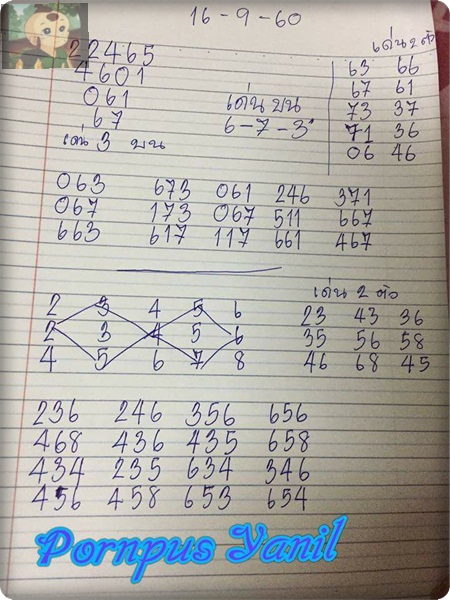 16-9-60
22465
4601
061
67
เด่น 3 บน
เด่น บน
6-7-3
เด่น 2 ตัว
63 66
67 61
73 37
71 36
06 46
063 673 061 246 371
067 173 067 511 667
663 617 117 661 467
2 3 4 5 6
2 3 4 5 6
4 5 6 7 8
เด่น 2 ตัว
23 43 36
35 56 58
46 68 45
236 246 356 656
468 436 435 658
434 235 634 346
456 458 653 654
Pornpus Yanil